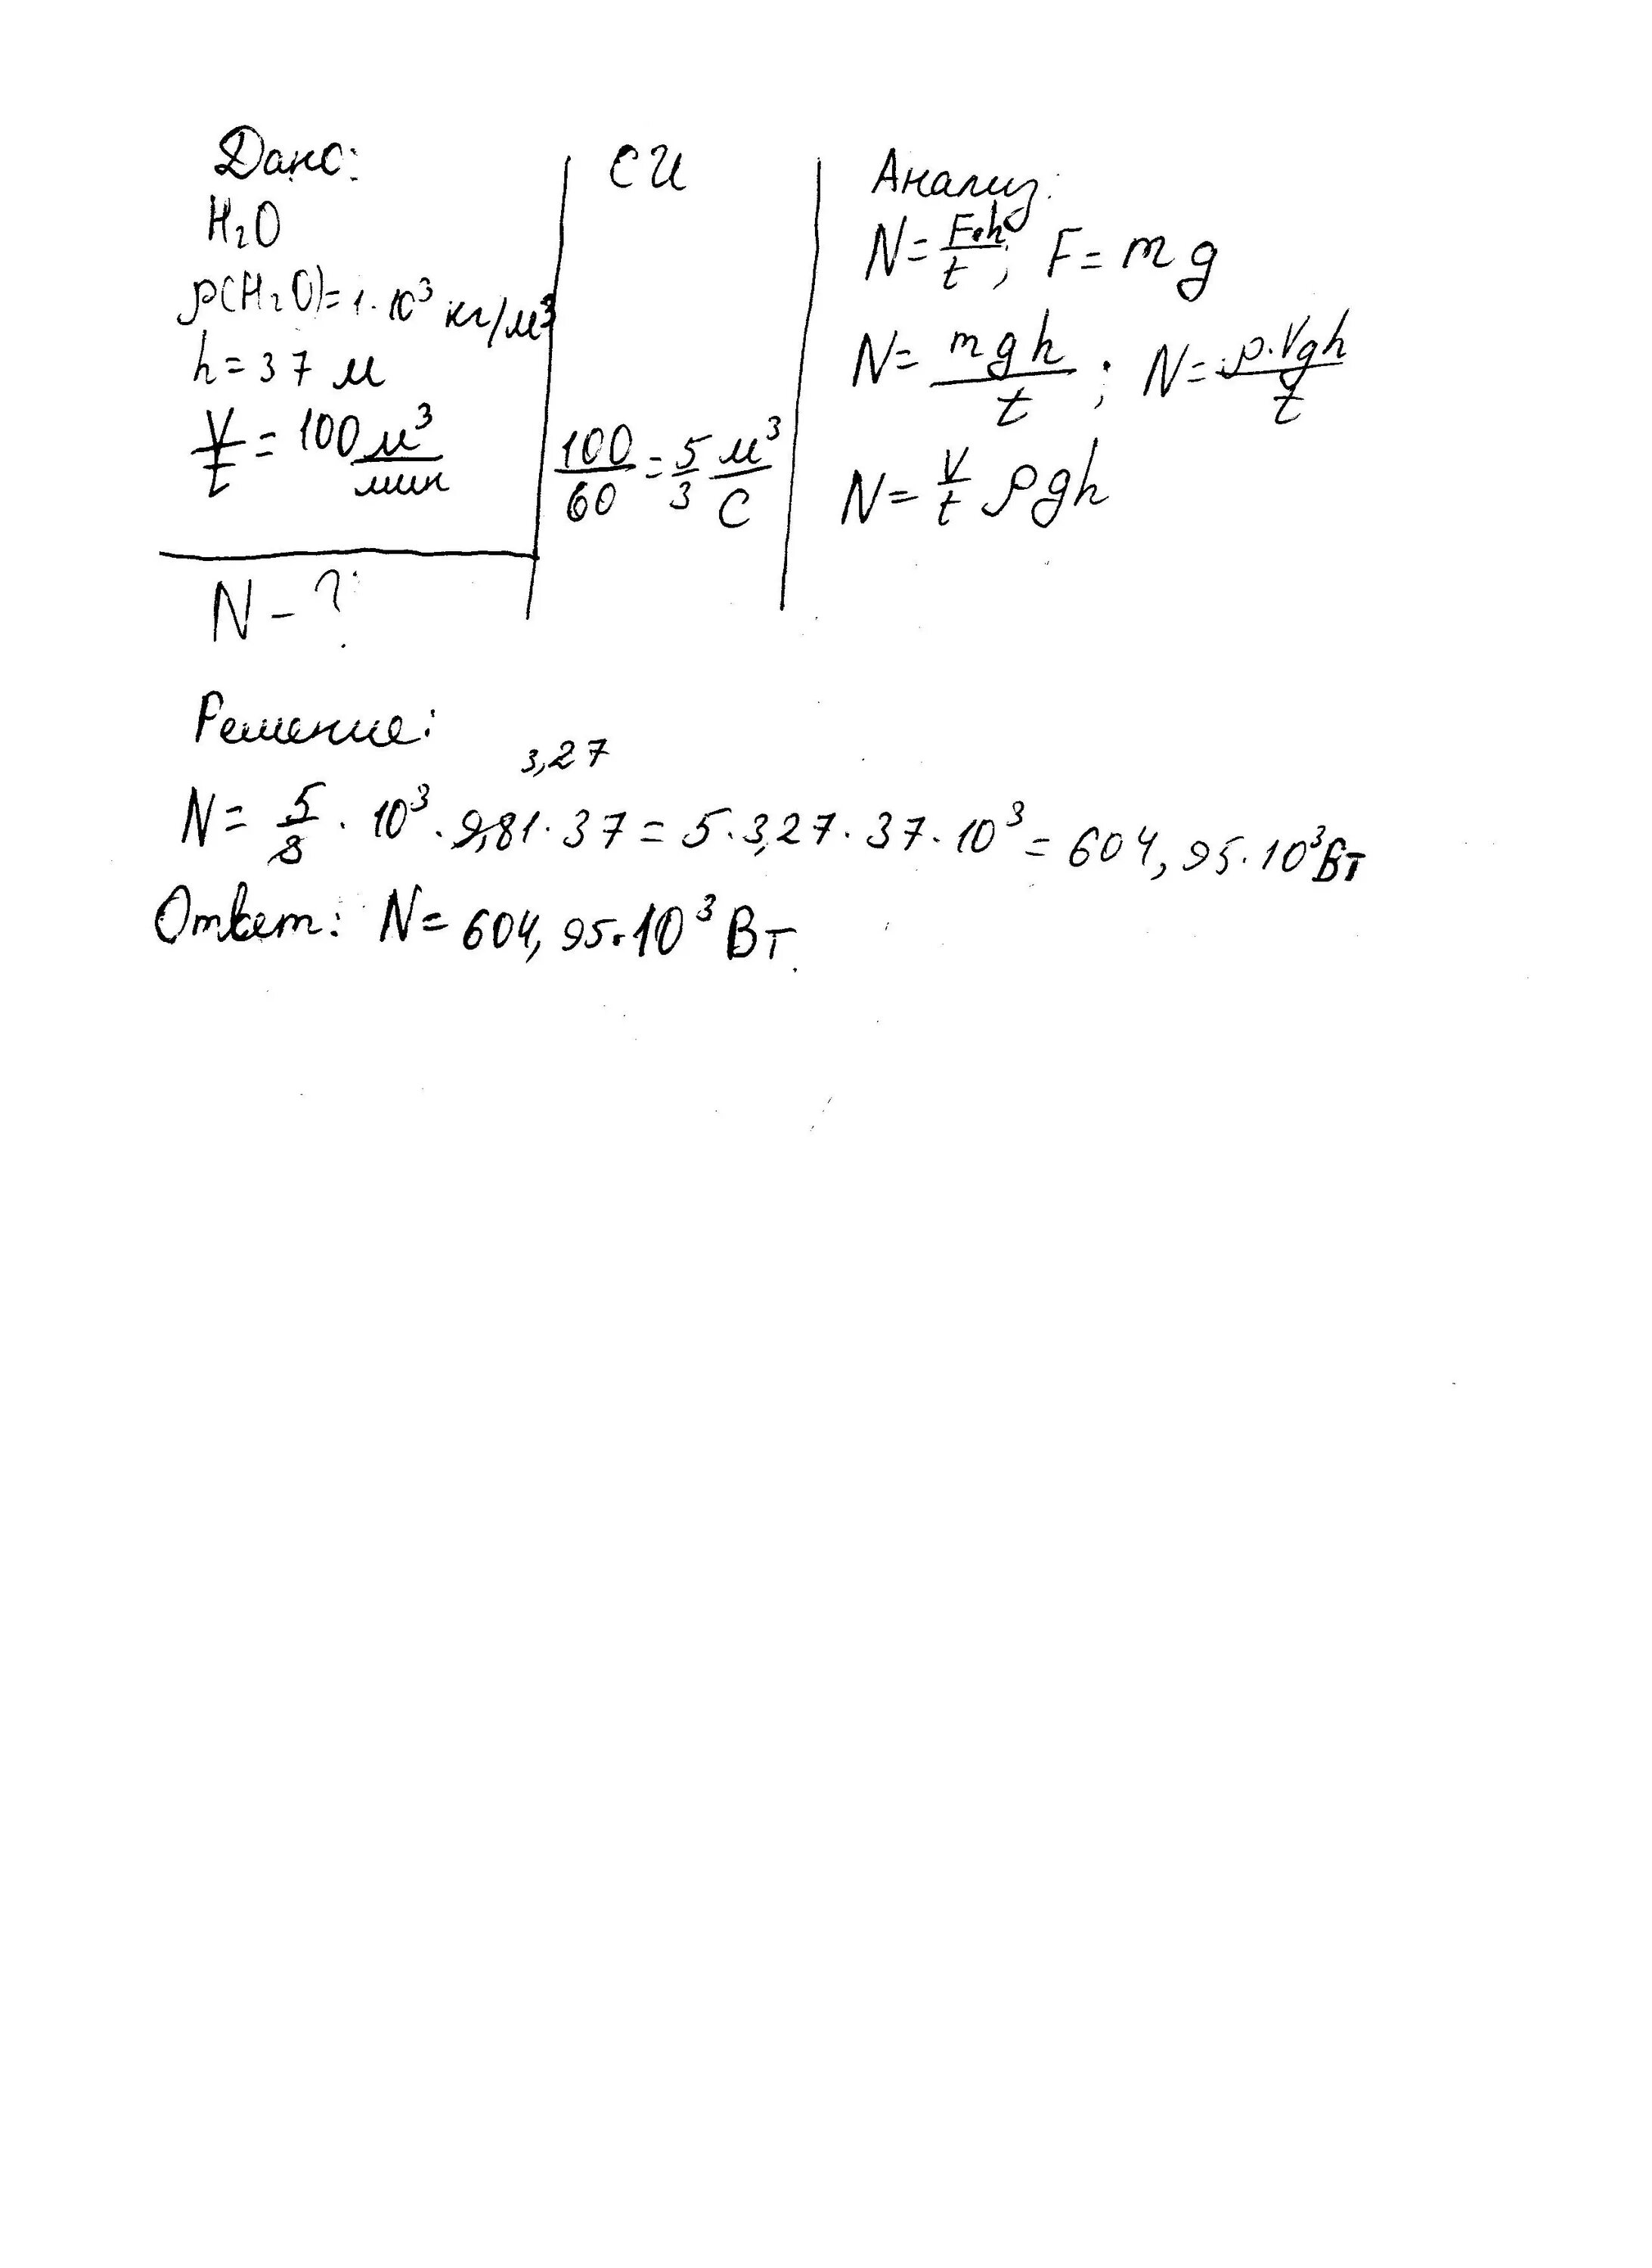 Дано:
H₂O
ρ(H₂O)=1·10³ кг/м³
h=37 м
V/t = 100 м³/мин
N-?
СИ
100/60 = 5/3 м³/с
Анализ:
N= F·h/t; F=mg
N= mgh/t; N= ρ·Vgh/t
N= V/t ρgh
Решение:
3,27
N= 5/3 · 10³ · 9,81 · 37 = 5·3,27·37·10³ = 604,95·10³Вт
Ответ: N= 604,95·10³ Вт.